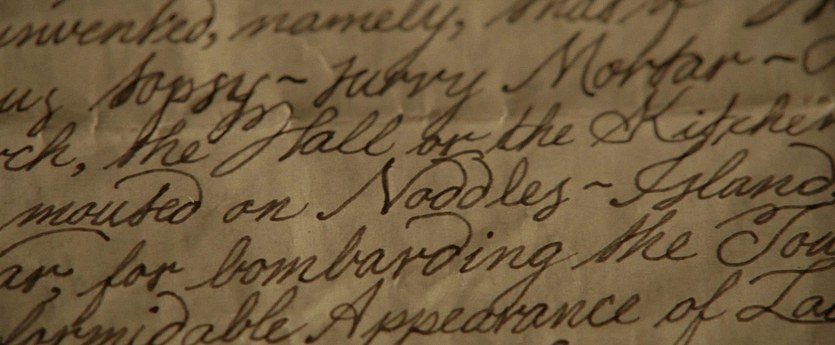 invented, namely, that of
topsy~turvy Mortar~
the Hall or the Kitchen
mouted on Noddles~Island
for bombarding the
formidable Appearance of